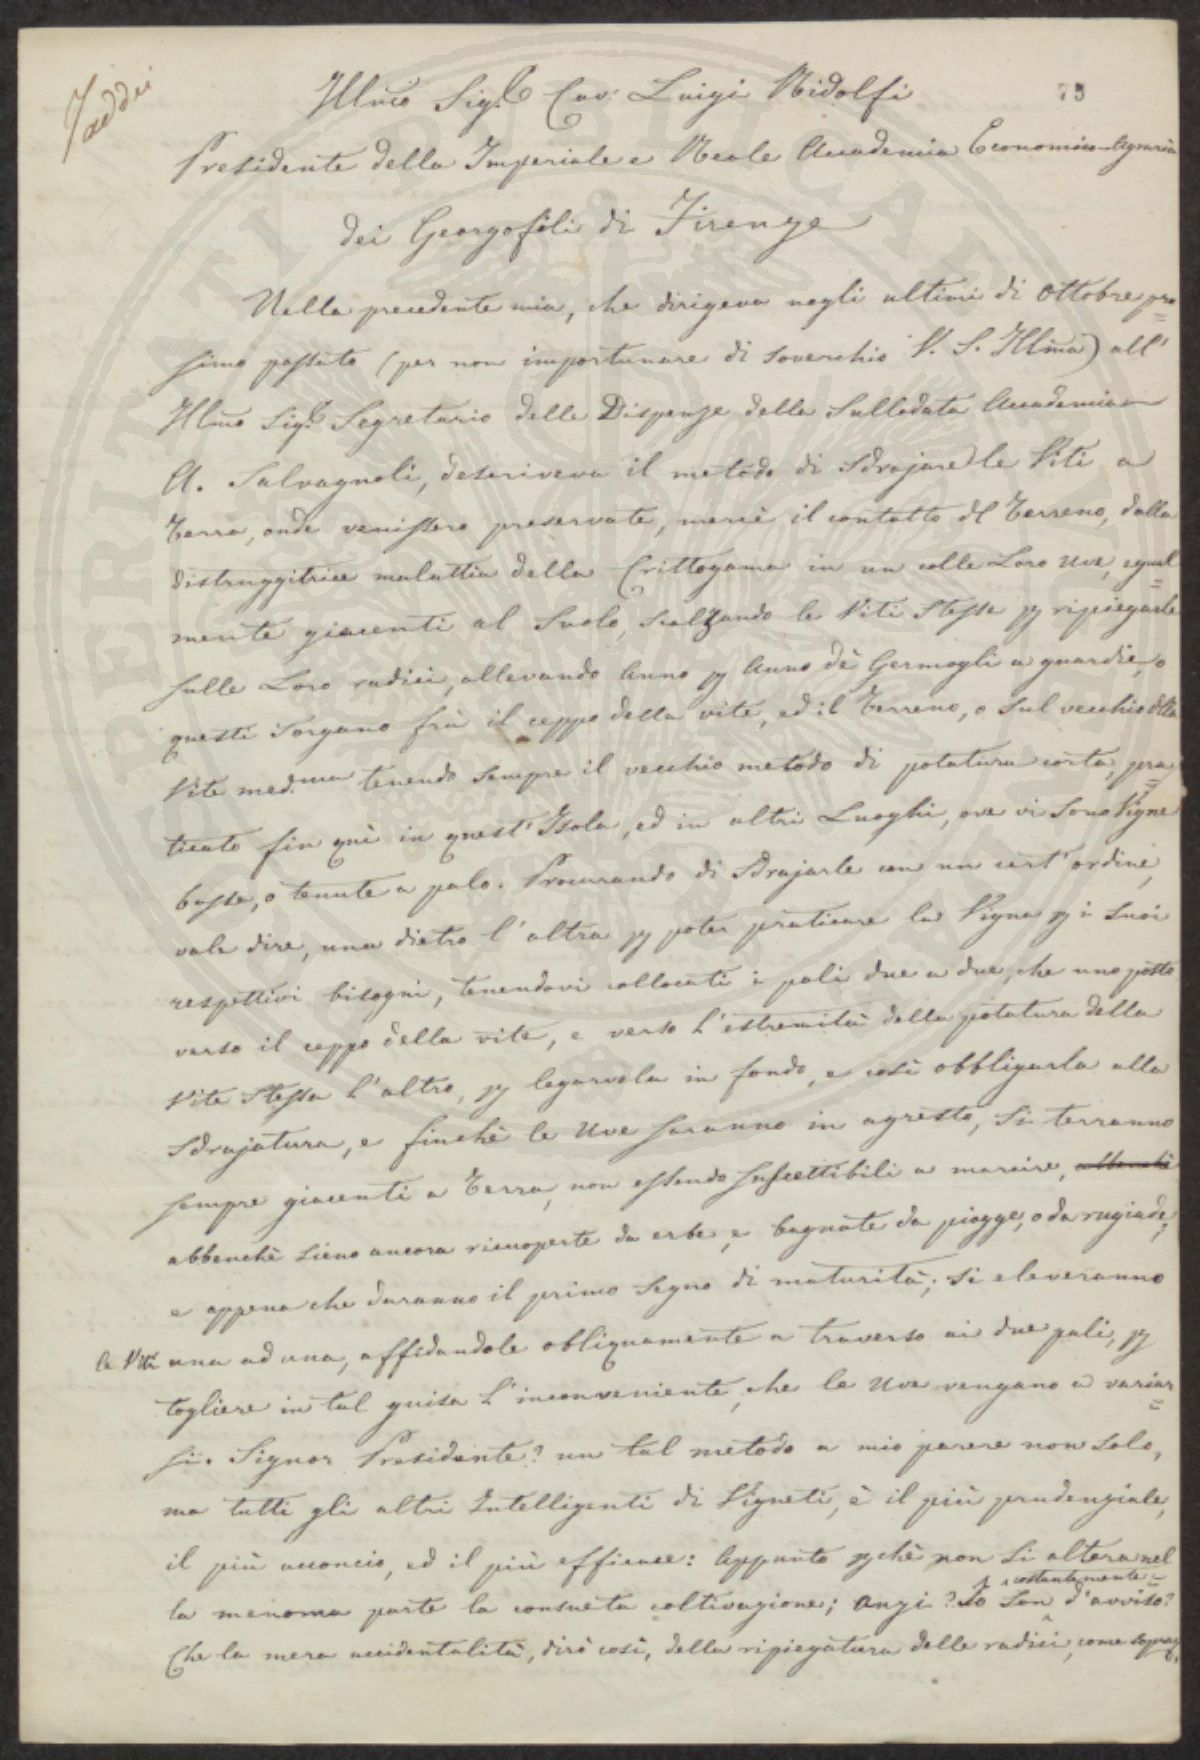 Taddei
75
Illmo Sigr Cav: Luigi Ridolfi
Presidente della Imperiale e Reale Accademia Economico-Agraria
dei Georgofili di Firenze
Nella precedente mia, che dirigeva negli ultimi di Ottobre pro=
simo passato (per non importunare di soverchio V. S. Illma) all'
Illmo Sigr Segretario delle Dispense della Sullodata Accademia
A. Salvagnoli, descriveva il metodo di Sdrajare le Viti a
Terra, onde venissero preservate, mercè il contatto dl Terreno, dalla
distruggitrice malattia della Crittogama in un colle Loro Uve, egual=
mente giacenti al Suolo, Scalzando le Viti Stesse p ripiegarle
sulle Loro radici, allevando Anno p Anno dè Germogli a guardie, o
questi Sorgano frà il ceppo della vite, ed il Terreno, o Sul vecchio dlla
Vite med.ma tenendo Sempre il vecchio metodo di potatura corta, pra=
ticato fin quì in quest' Isola, ed in altri Luoghi, ove vi Sono Vigne
basse, o tenute a palo. Procurando di Sdrajarle con un cert' ordine,
vale dire, una dietro l'altra p poter praticare la Vigna p i Suoi
respettivi bisogni, tenendovi collocati i pali due a due, che uno posto
verso il ceppo della vite, e verso l'estremità della potatura della
Vite Stessa l'altro, p legarvela in fondo, e così obbligarla alla
Sdrajatura, e finchè le Uve saranno in agresto, Si terranno
sempre giacenti a Terra, non essendo suscettibili a marcire, abbenchè
abbenchè Sieno ancora ricuoperte da erbe, e bagnate da piogge, o da rugiade;
e appena che daranno il primo Segno di maturità; Si eleveranno
le Viti una ad una, affidandole obliquamente a traverso ai due pali, p
togliere in tal guisa l'inconveniente, che le Uve vengano a variar=
si. Signor Presidente? un tal metodo a mio parere non solo,
ma tutti gli altri Intelligenti di Vigneti, è il più prudenziale,
il più acconcio, ed il più efficace: Appunto pchè non Si altera nel=
costantemente
la menoma parte la consueta coltivazione; Anzi? Io Son d'avviso?
Che la mera accidentalità, dirò così, della ripiegatura delle radici, come